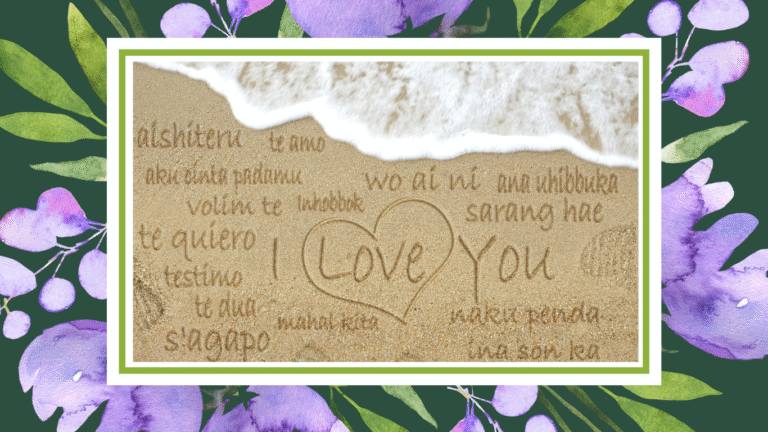 aishiteru
te amo
aku cinta padamu
wo ai ni
ana uhibbuka
volim te
Inhobbok
sarang hae
te quiero
I Love You
testimo
te dua
mahal kita
naku penda
s'agapo
ina son ka